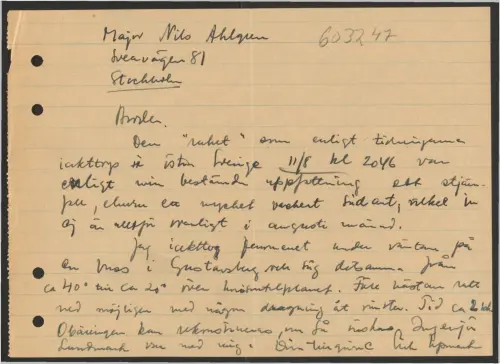 Major Nils Ahlgren 603247
Sveavägen 81
Stockholm
Broder.
Den "raket" som enligt tidningarna
iakttogs i östra Sverige 11/8 kl 2046 var
enligt min bestämda uppfattning ett stjärn-
fall, ehuru ca mycket vackert sådant, vilket in
ej är alltför ovanligt i augusti månad.
Jag iakttog fenomenet under väntan på
en buss i Gustavsberg och såg detsamma från
ca 40° till ca 20° över horisontalplanet. Föll nästan rätt
ned möjligen med någon dragning åt vänster. Tid ca 2 sek
Obäringen kan rekonstrueras om så önskas. Ingenjör
Landmark var med mig.